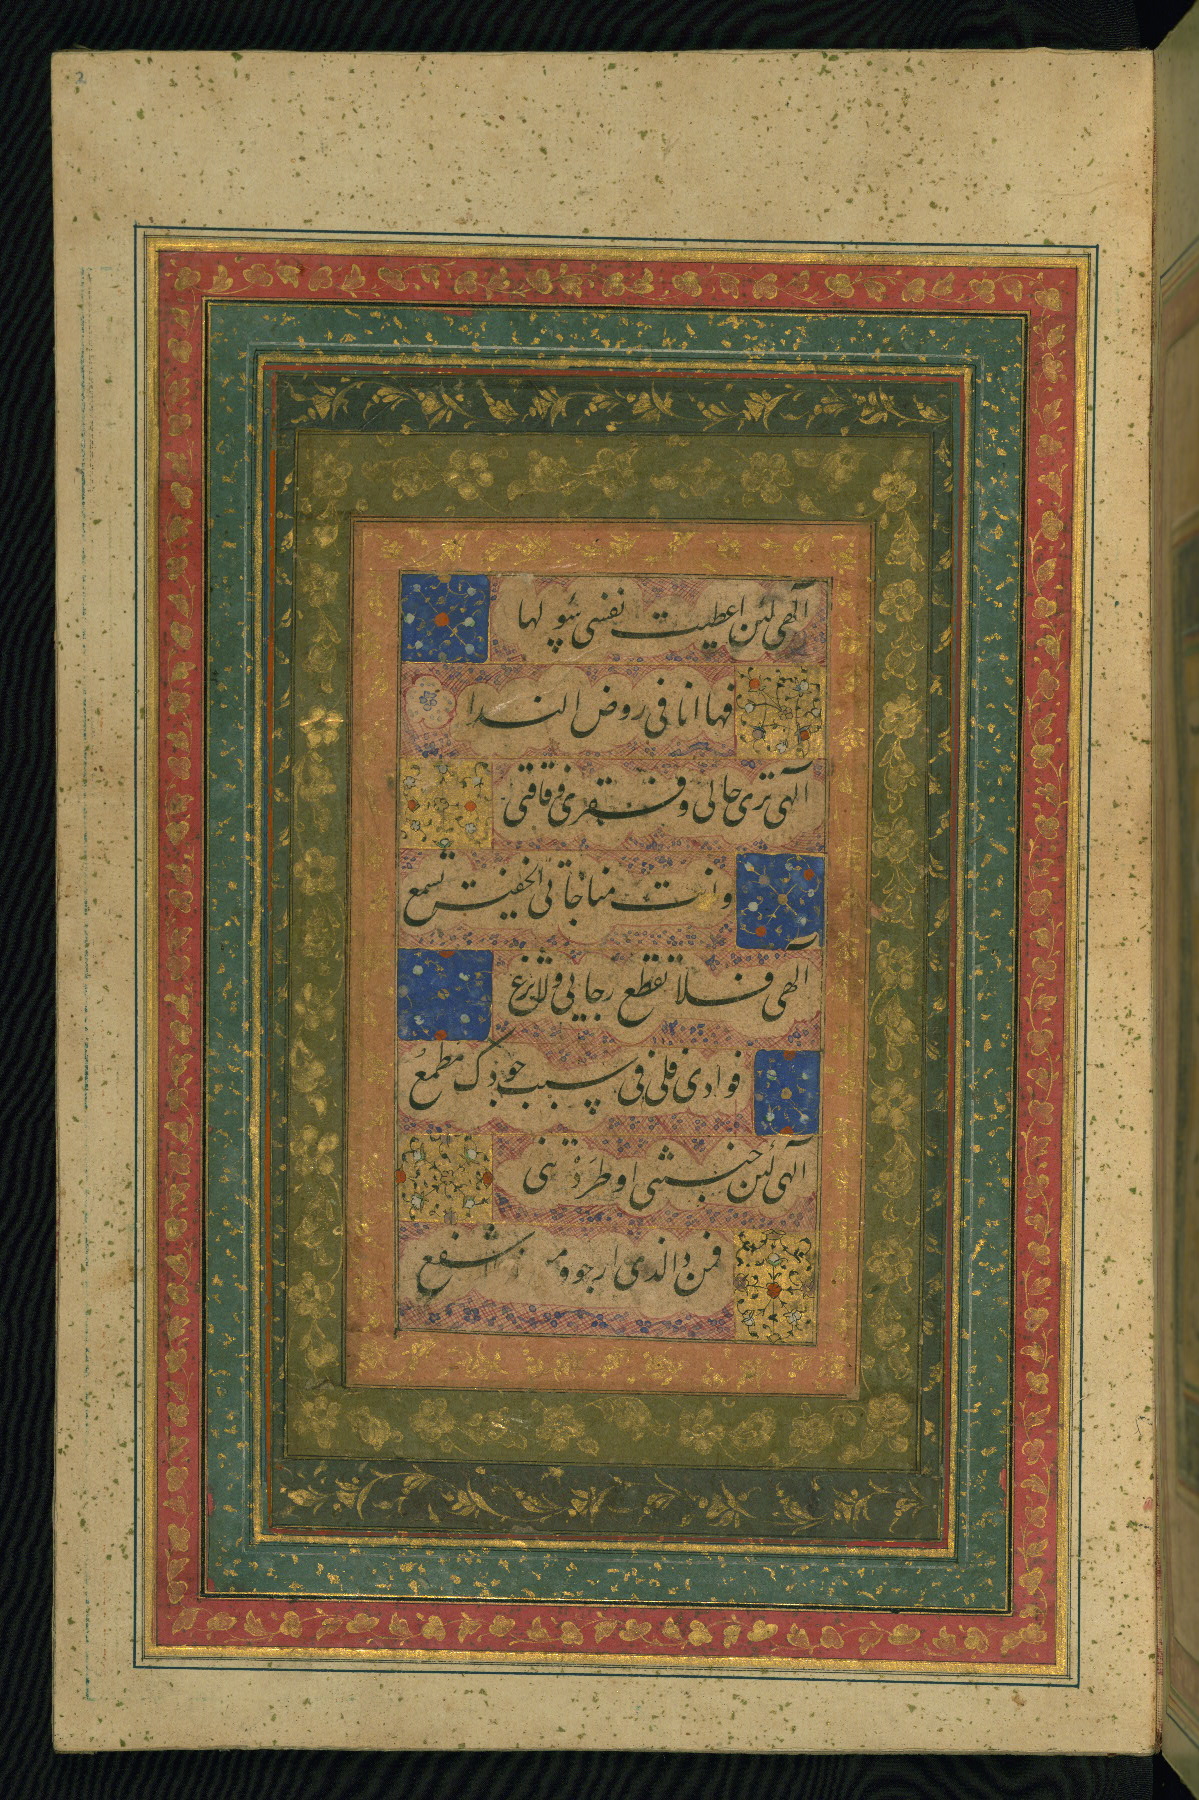 2
آلهي لئن اعطيت نفسي سئولها
فها انا في روض الندا
آلهي ترى حالي وفقري وفاقتي
وانت مناجاتي الخفيت تسمع
آلهي فلا تقطع رجايي ولا تزغ
فوادي فلي في سيب جودك مطمع
آلهي لئن خيبتني او طردتني
فمن ذا الذي ارجو ومن اشفع